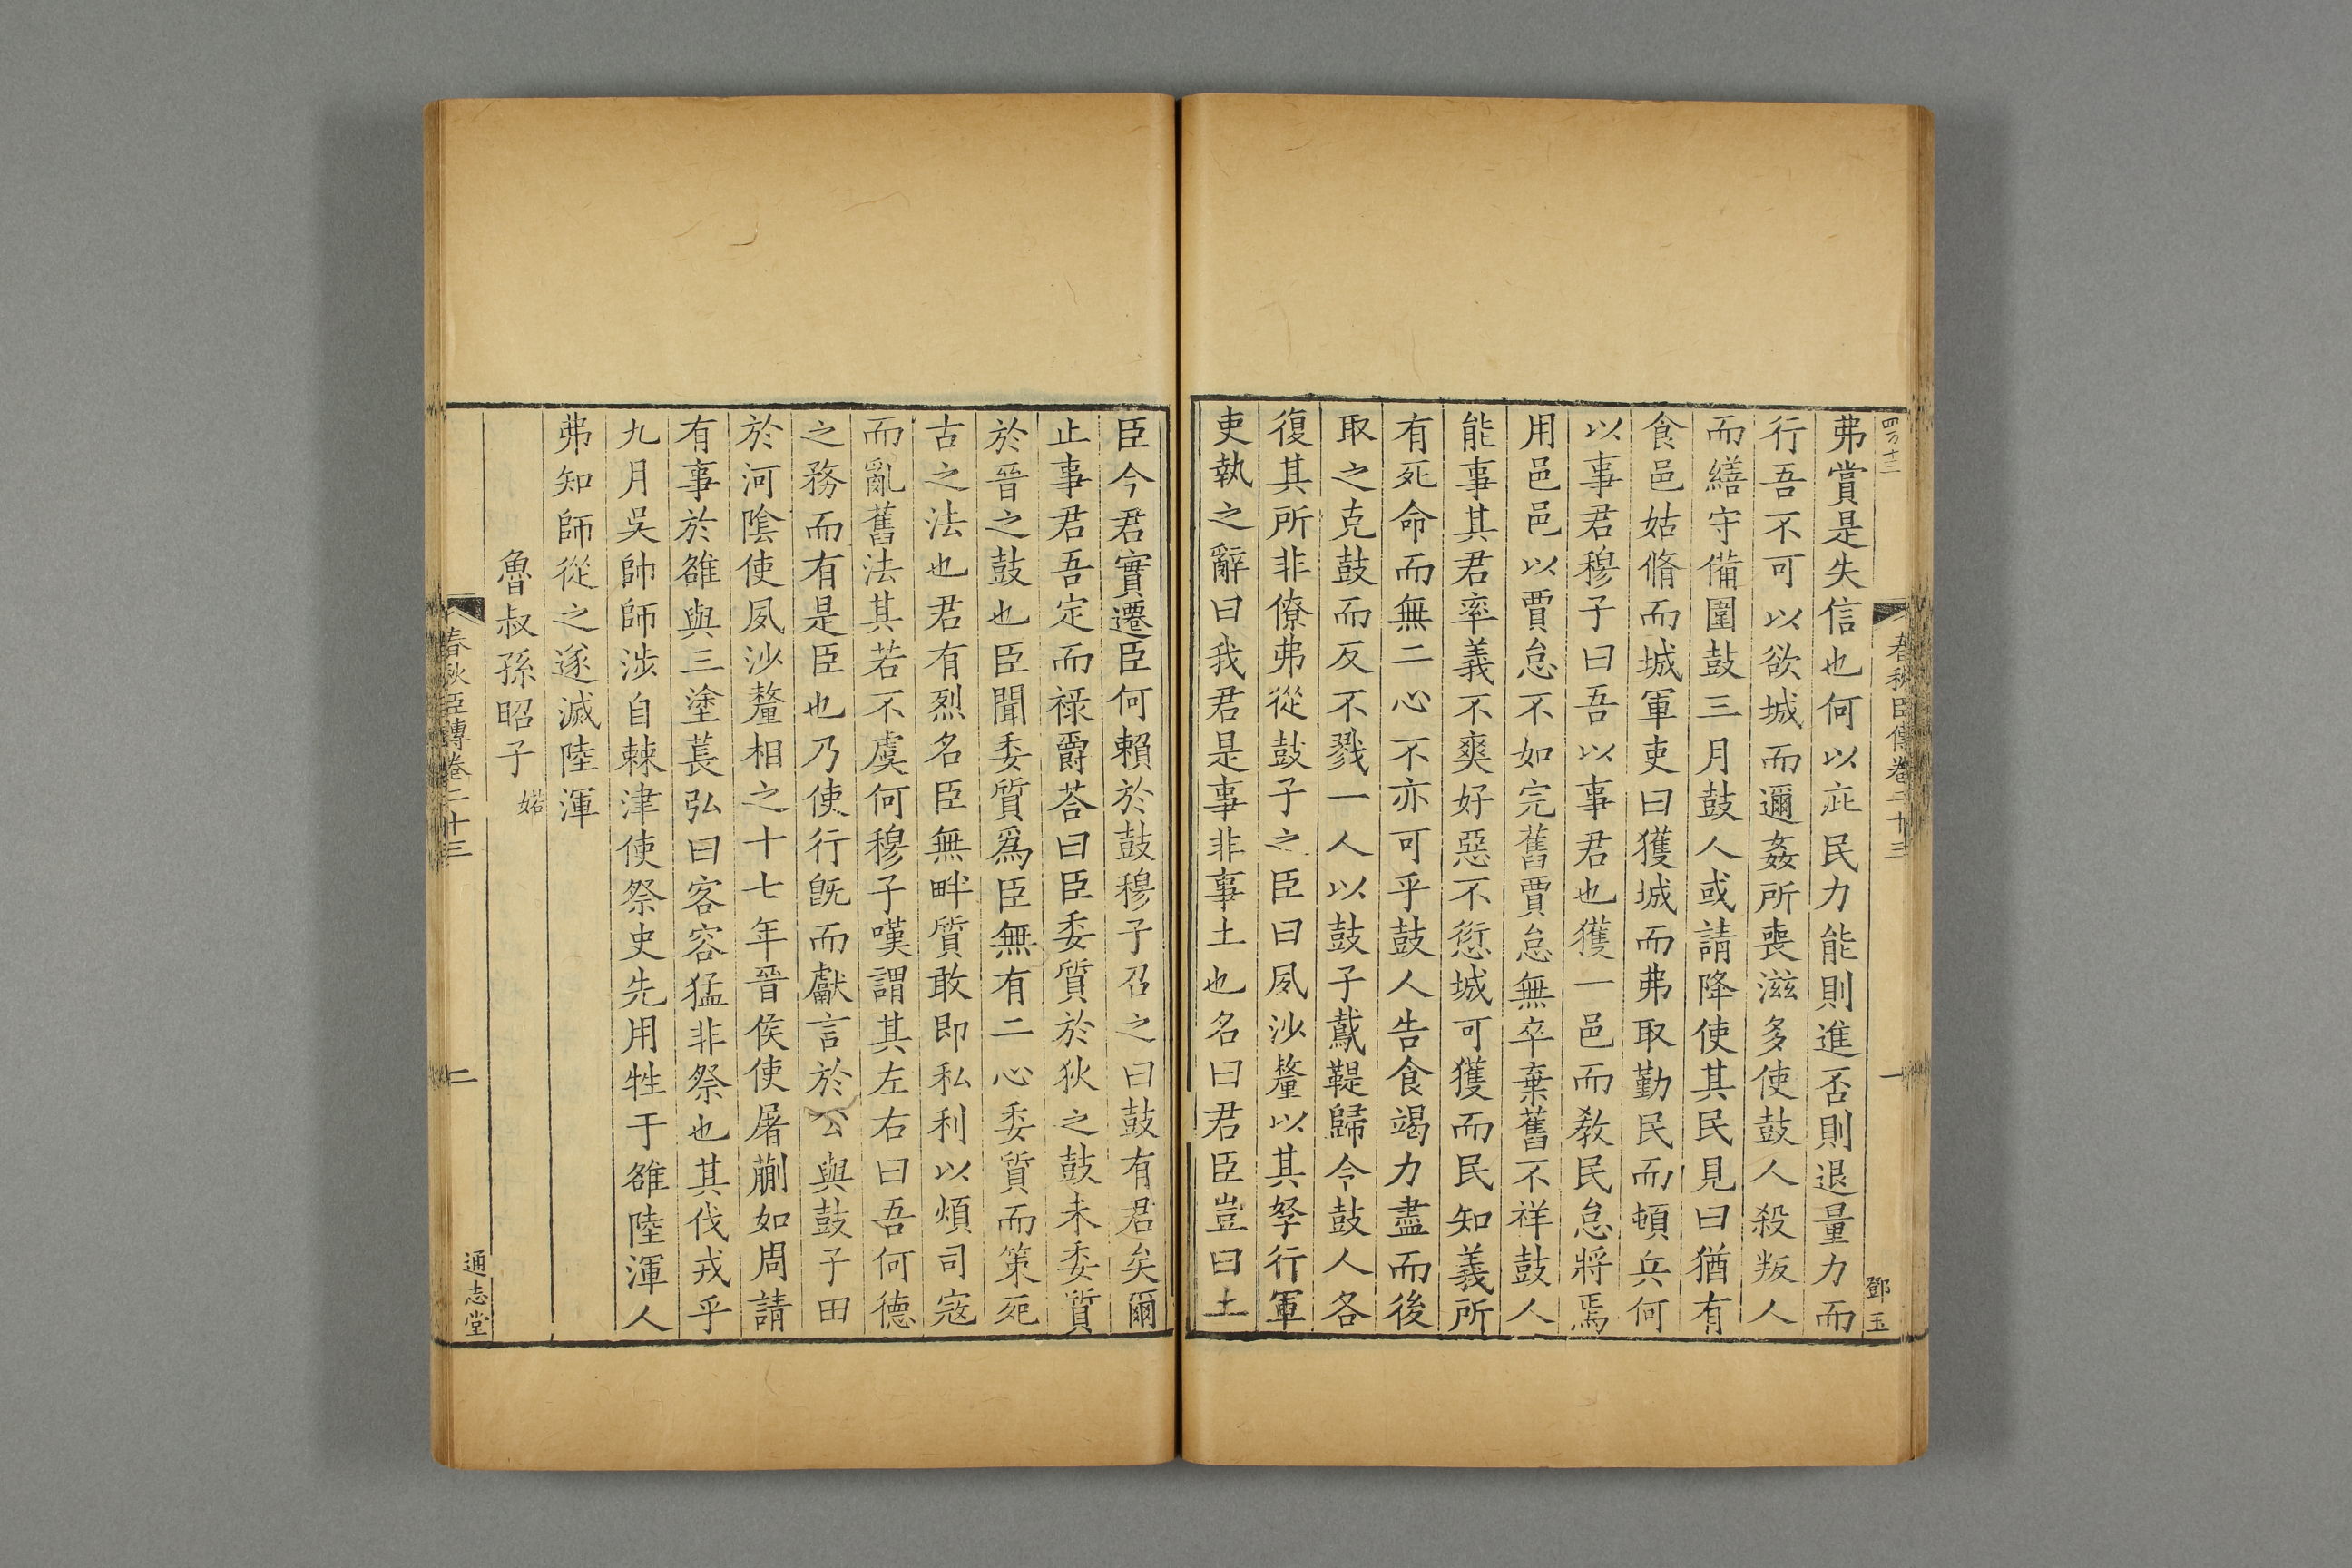 四百十三
春秋臣傳卷二十三
一
鄧玉
弗賞是失信也何以庇民力能則進否則退量力而
行吾不可以欲城而邇姦所喪滋多使鼓人殺叛人
而繕守備圍鼓三月鼓人或請降使其民見曰猶有
食邑姑脩而城軍吏曰獲城而弗取勤民而頓兵何
以事君穆子曰吾以事君也獲一邑而教民怠將焉
用邑邑以賈怠不如完舊賈怠無卒棄舊不祥鼓人
能事其君率義不爽好惡不愆城可獲而民知義所
有死命而無二心不亦可乎鼓人告食竭力盡而後
取之克鼓而反不戮一人以鼓子䳒鞮歸令鼓人各
復其所非僚弗從鼓子之臣曰夙沙釐以其孥行軍
吏執之辭曰我君是事非事土也名曰君臣豈曰土
臣今君實遷臣何賴於鼓穆子召之曰鼓有君矣爾
止事君吾定而祿爵荅曰臣委質於狄之鼓未委質
於晉之鼓也臣聞委質爲臣無有二心委質而策死
古之法也君有烈名臣無畔質敢即私利以煩司寇
而亂舊法其若不虞何穆子嘆謂其左右曰吾何德
之務而有是臣也乃使行旣而獻言於公與鼓子田
於河隂使夙沙釐相之十七年晉侯使屠蒯如周請
有事於雒與三塗萇弘曰客容猛非祭也其伐戎乎
九月吳帥師涉自棘津使祭史先用牲于雒陸渾人
弗知師從之遂滅陸渾
魯叔孫昭子婼
春秋臣傳卷二十三
二
通志堂